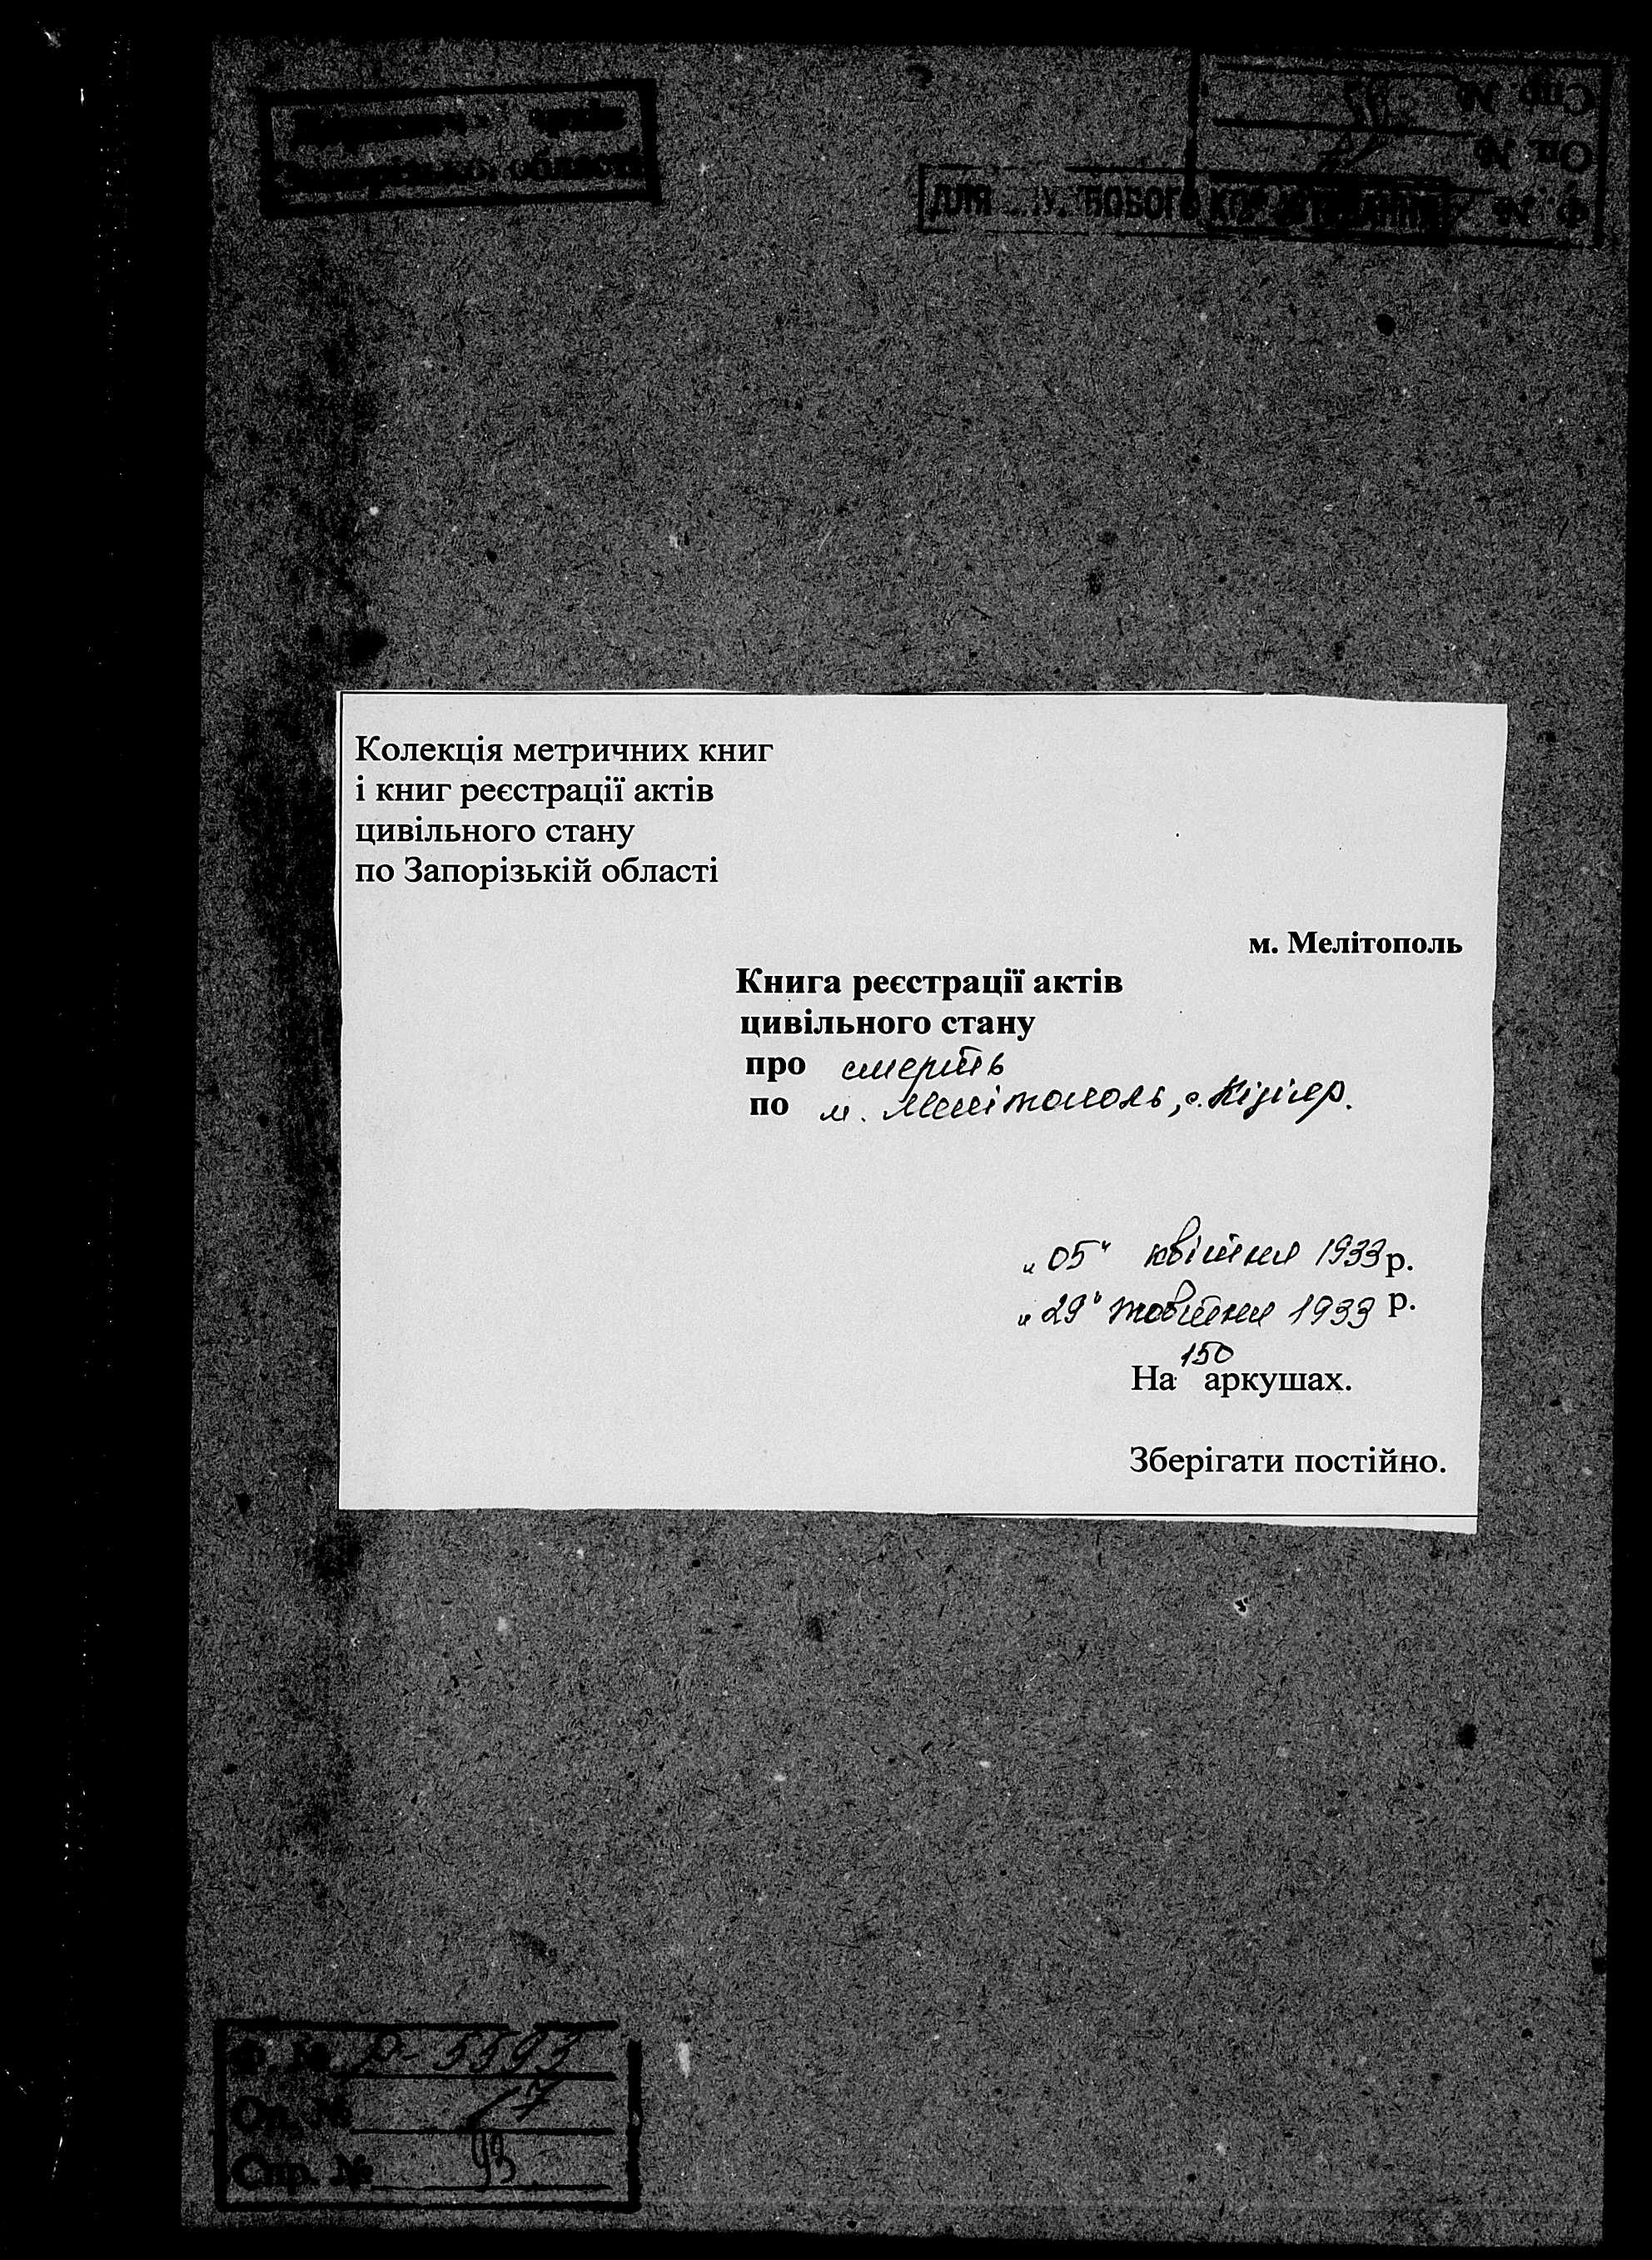 архів
Запорізької області
Спр. №
Оп. №
Ф. №
ДЛЯ
Колекція метричних книг
і книг реєстрації актів
цивільного стану
по Запорізькій області
м. Мелітополь
Книга реєстрації актів
цивільного стану
про смерть
по м. Мелітополь, с. Кізіяр.
„05“ квітня 1933 р.
„29“ жовтня 1933 р.
На 150 аркушах.
Зберігати постійно.
Ф. № Р-5593
Оп. № 17
Спр. № 93